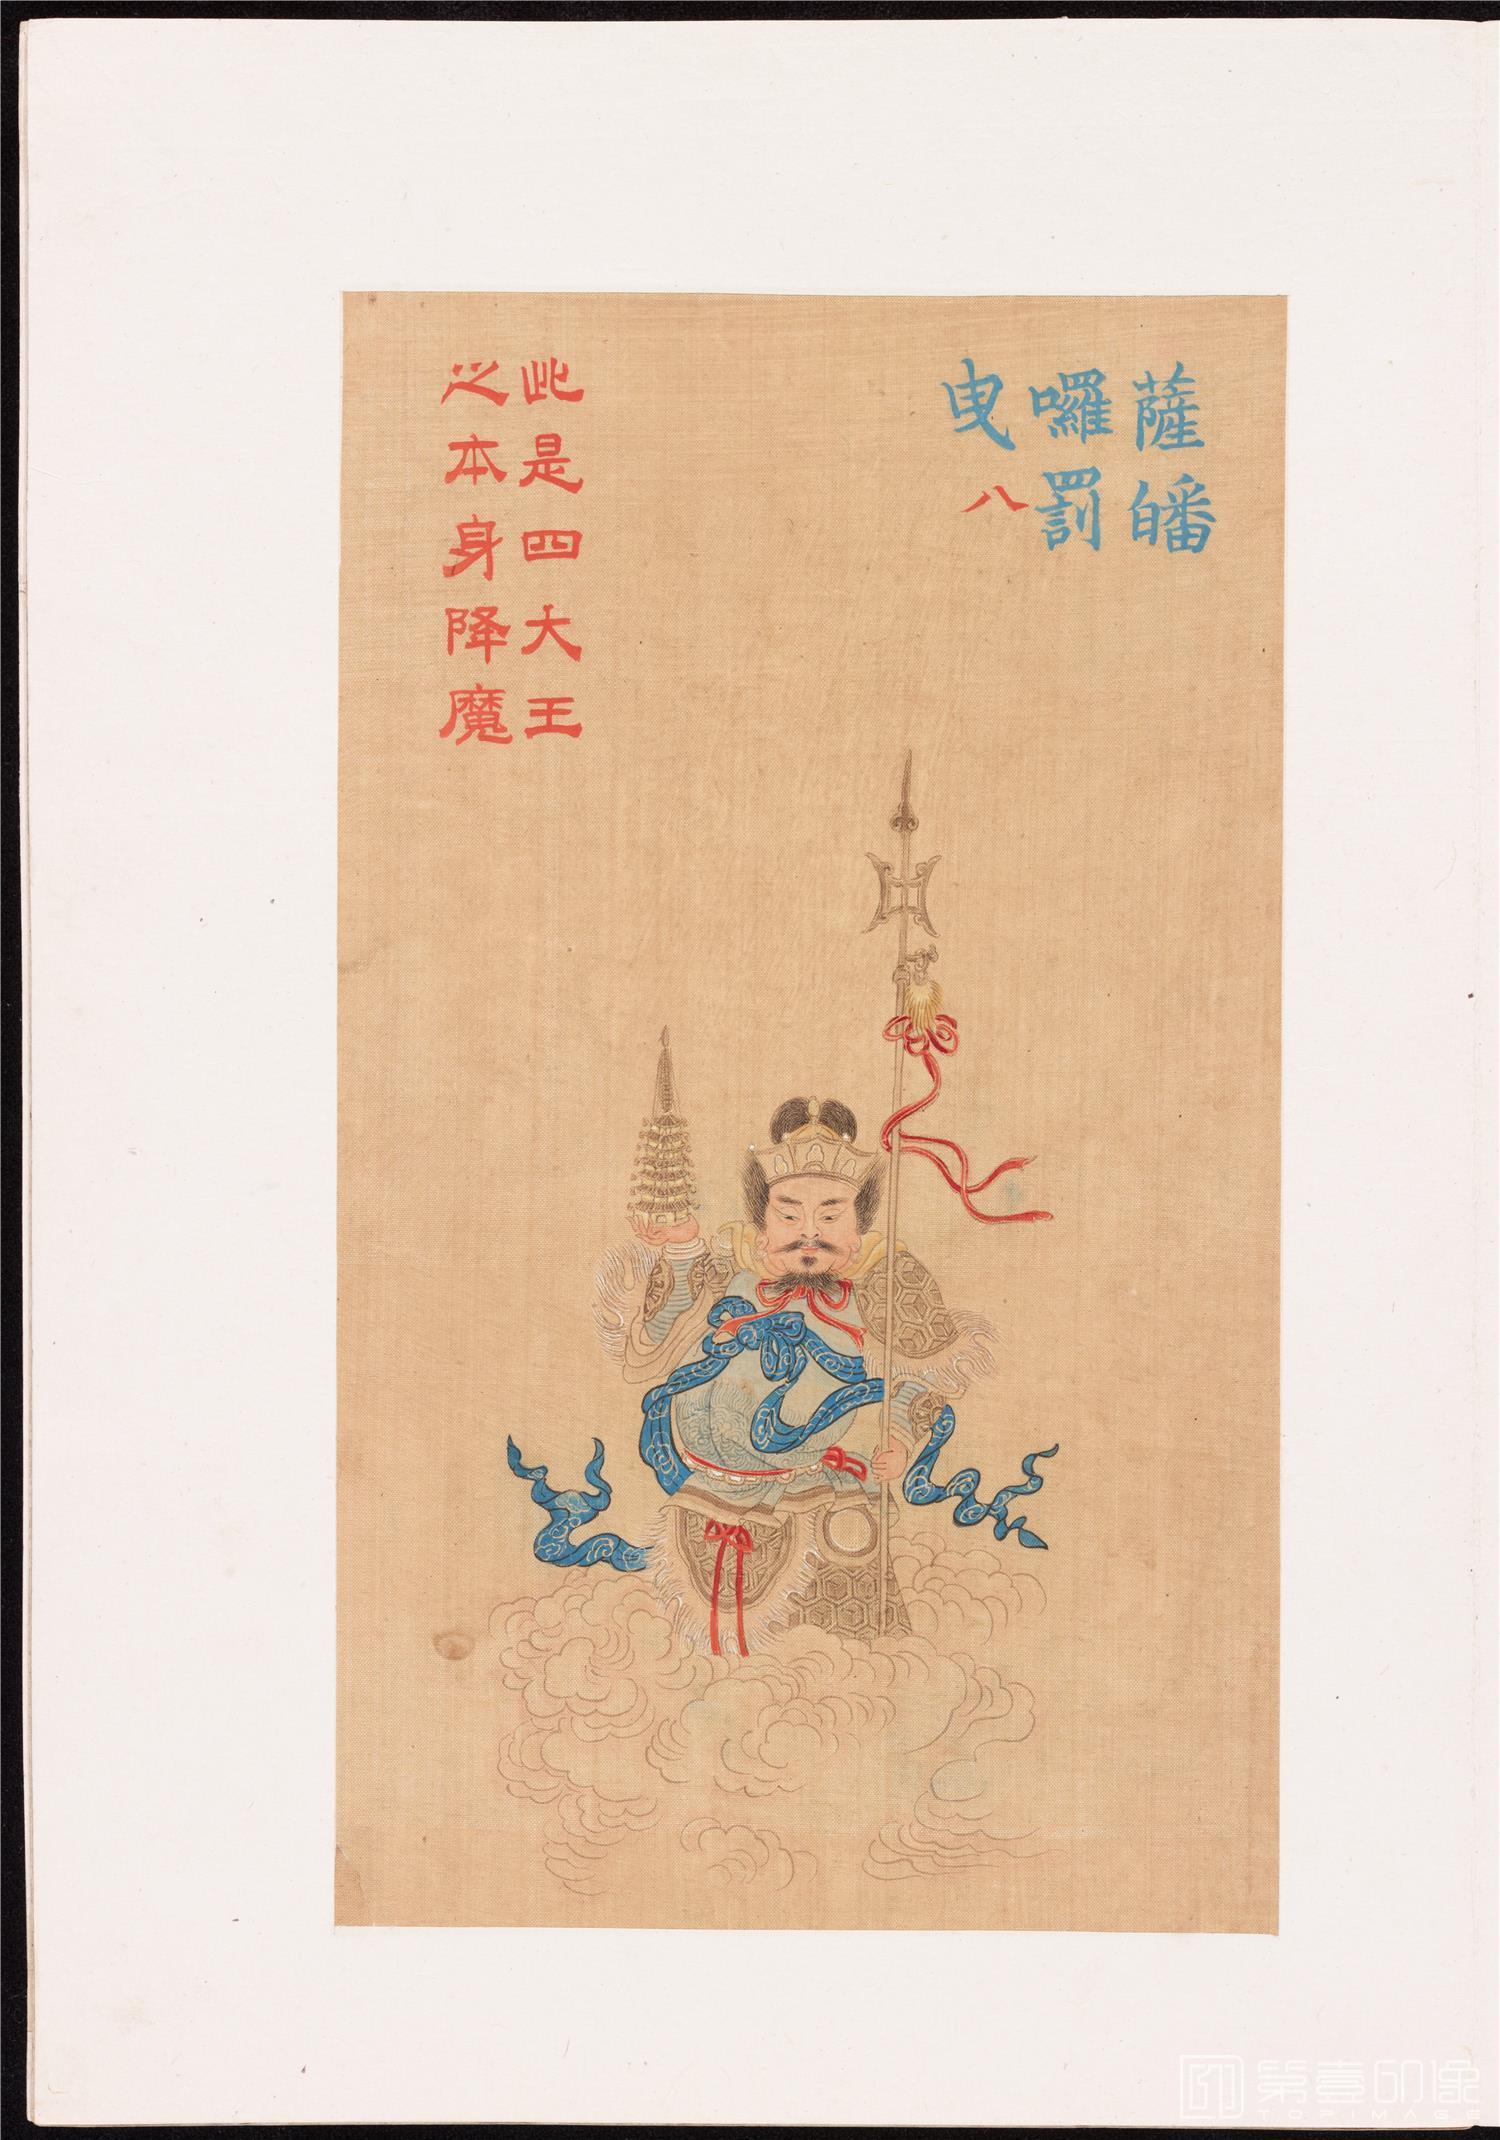 薩皤
囉罰
曳八
此是四大王
之本身降魔
第壹印像
TOPIMAGE